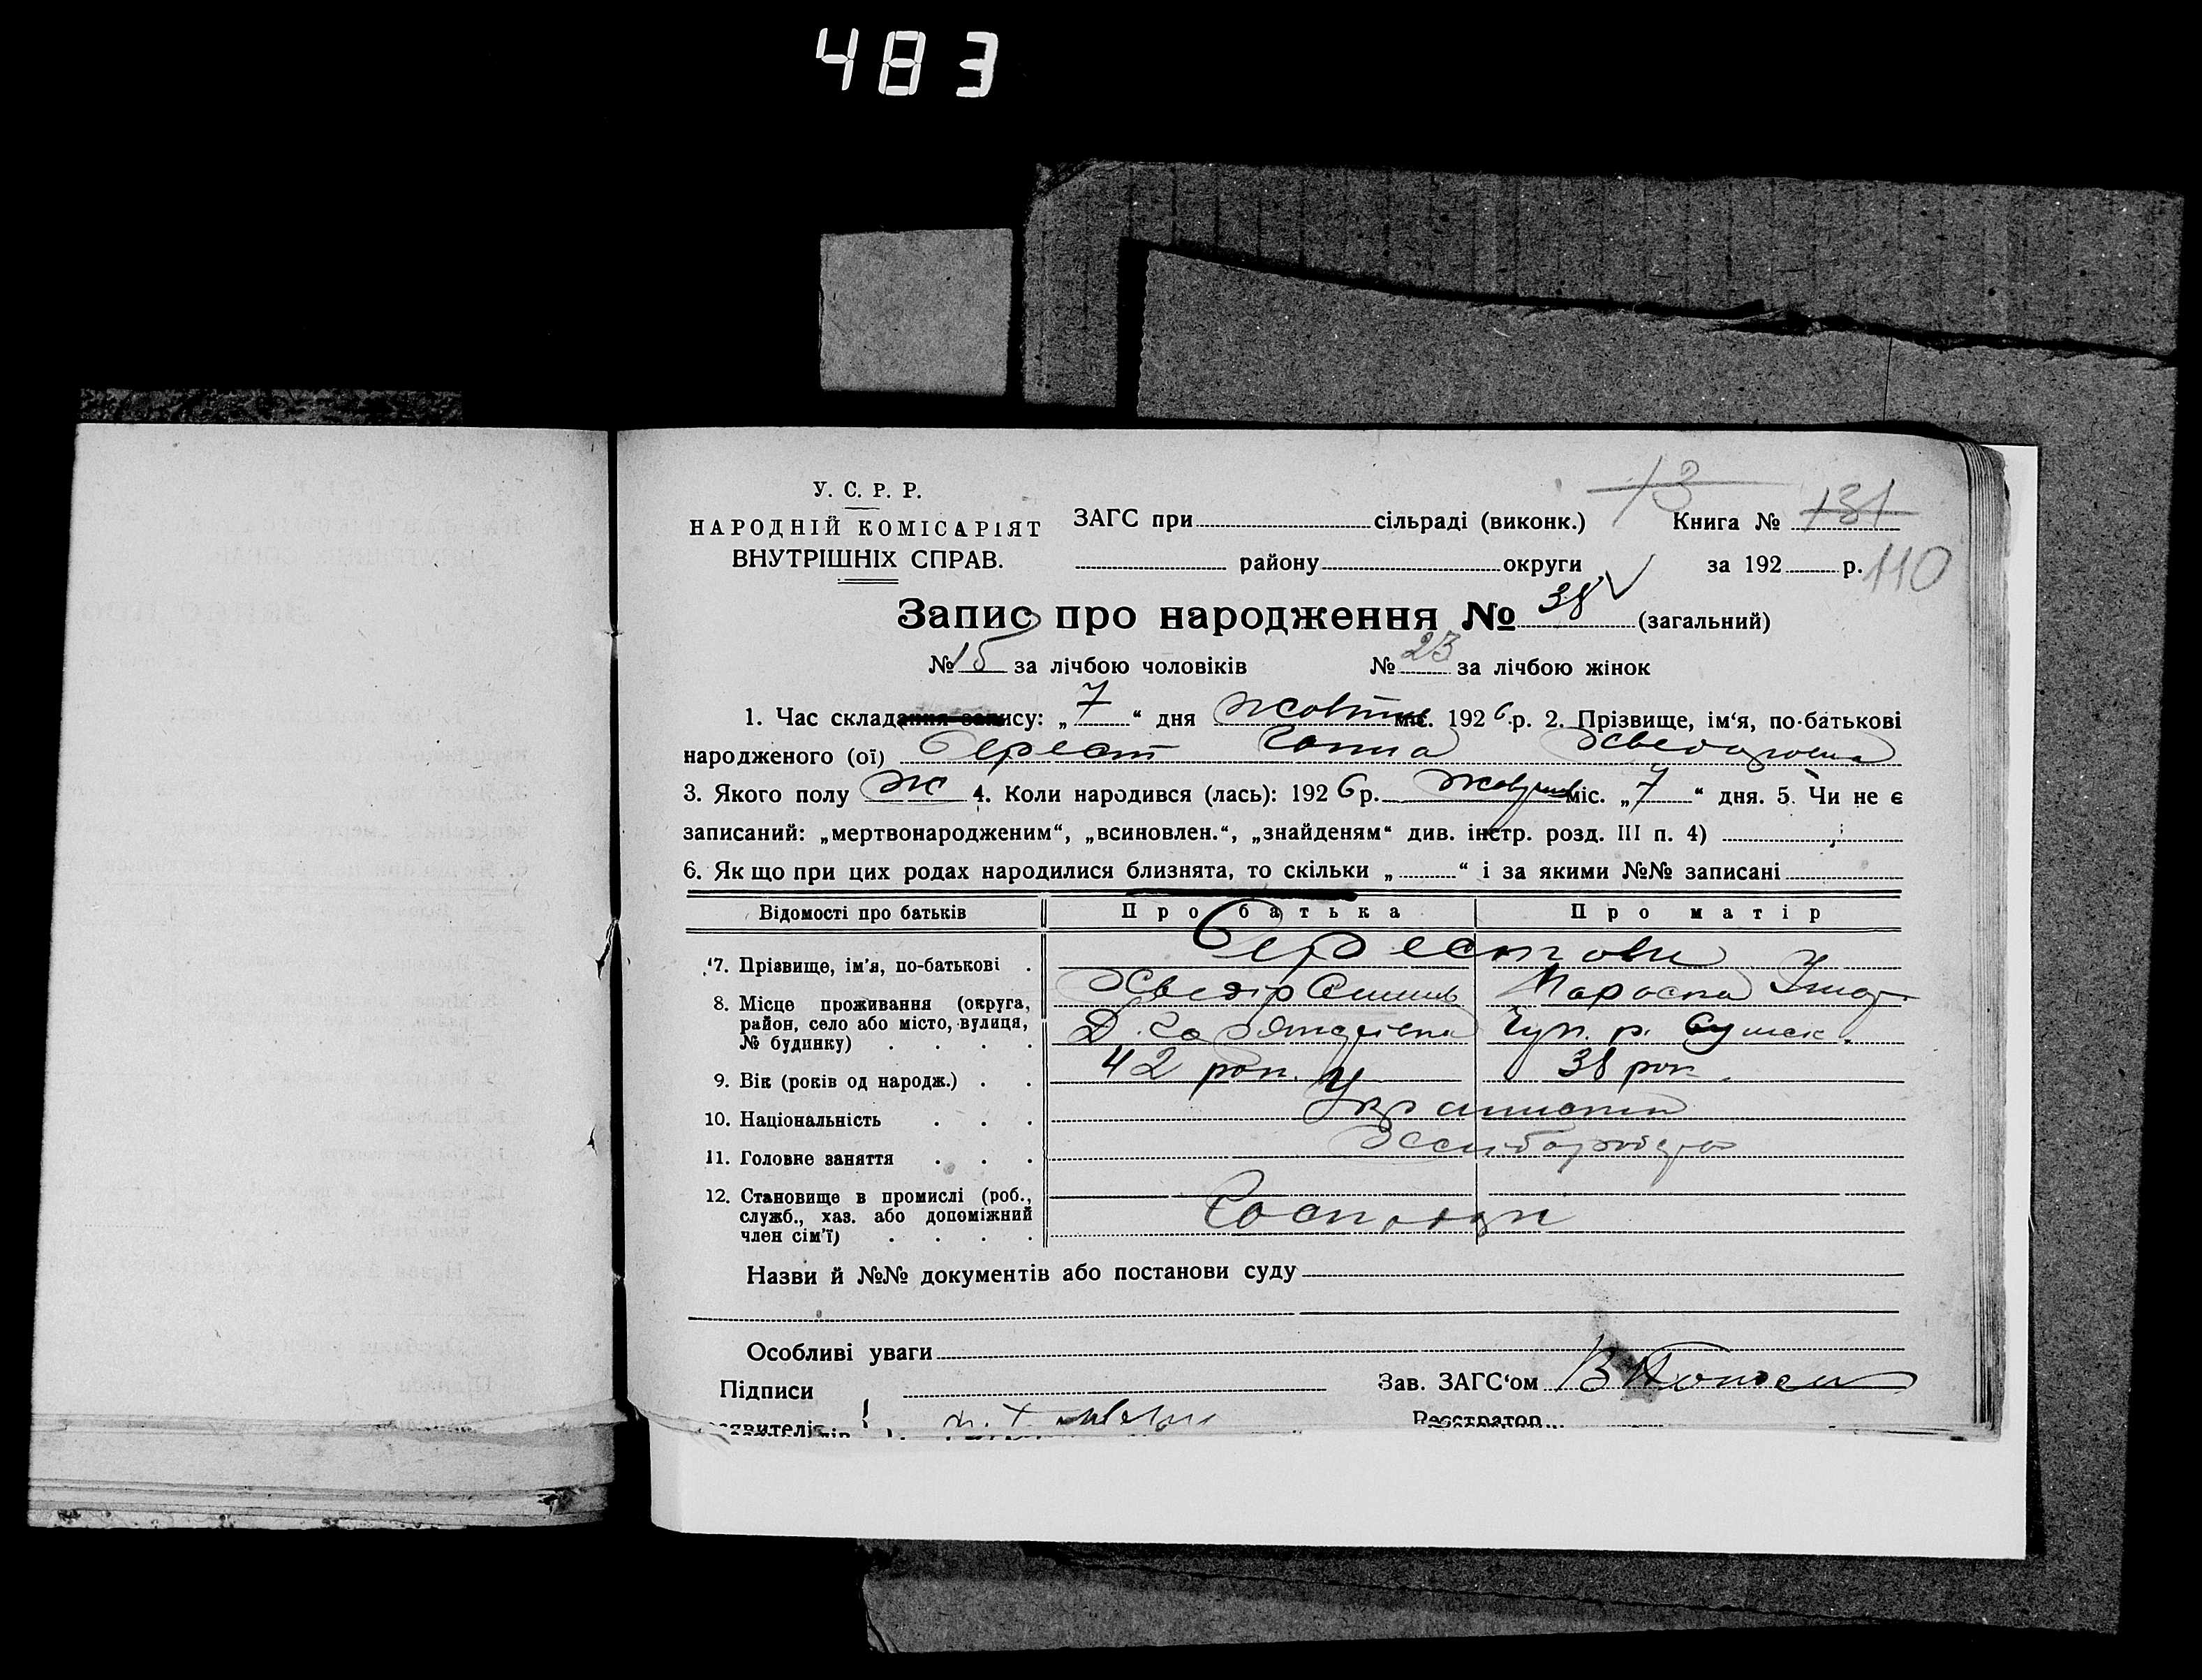 483
У. С. Р. Р.
НАРОДНІЙ КОМІСАРІЯТ
ВНУТРІШНІХ СПРАВ.
13
ЗАГС при сільраді (виконк.) Книга № 131
району округи за 192 р. 110
Запис про народження № 38 (загальний)
№ 15 за лічбою чоловіків № 23 за лічбою жінок
1. Час складання запису: „7“ дня міс. 1926 р. 2. Прізвище, ім‘я, по-батькові
народженого (ої) Берест Ганна
3. Якого полу ж 4. Коли народився (лась): 1926 р. міс. „7“ дня. 5. Чи не є
записаний: „мертвонародженим“, „всиновлен.“, „знайденям“ див. інстр. розд. III п. 4)
6. Як що при цих родах народилися близнята, то скільки „ “ і за якими №№ записані
Відомості про батьків Про батька Про матір
7. Прізвище, ім'я, по-батькові Берестови
8. Місце проживання (округа,
район, село або місто, вулиця,
№ будинку)
9. Вік (років од народж.) 42 рок. 38 рок.
10. Національність
11. Головне заняття
12. Становище в промислі (роб.,
служб., хаз. або допоміжний
член сім'ї)
Назви й №№ документів або постанови суду
Особливі уваги
Підписи Зав. ЗАГС‘ом
Реєстратор